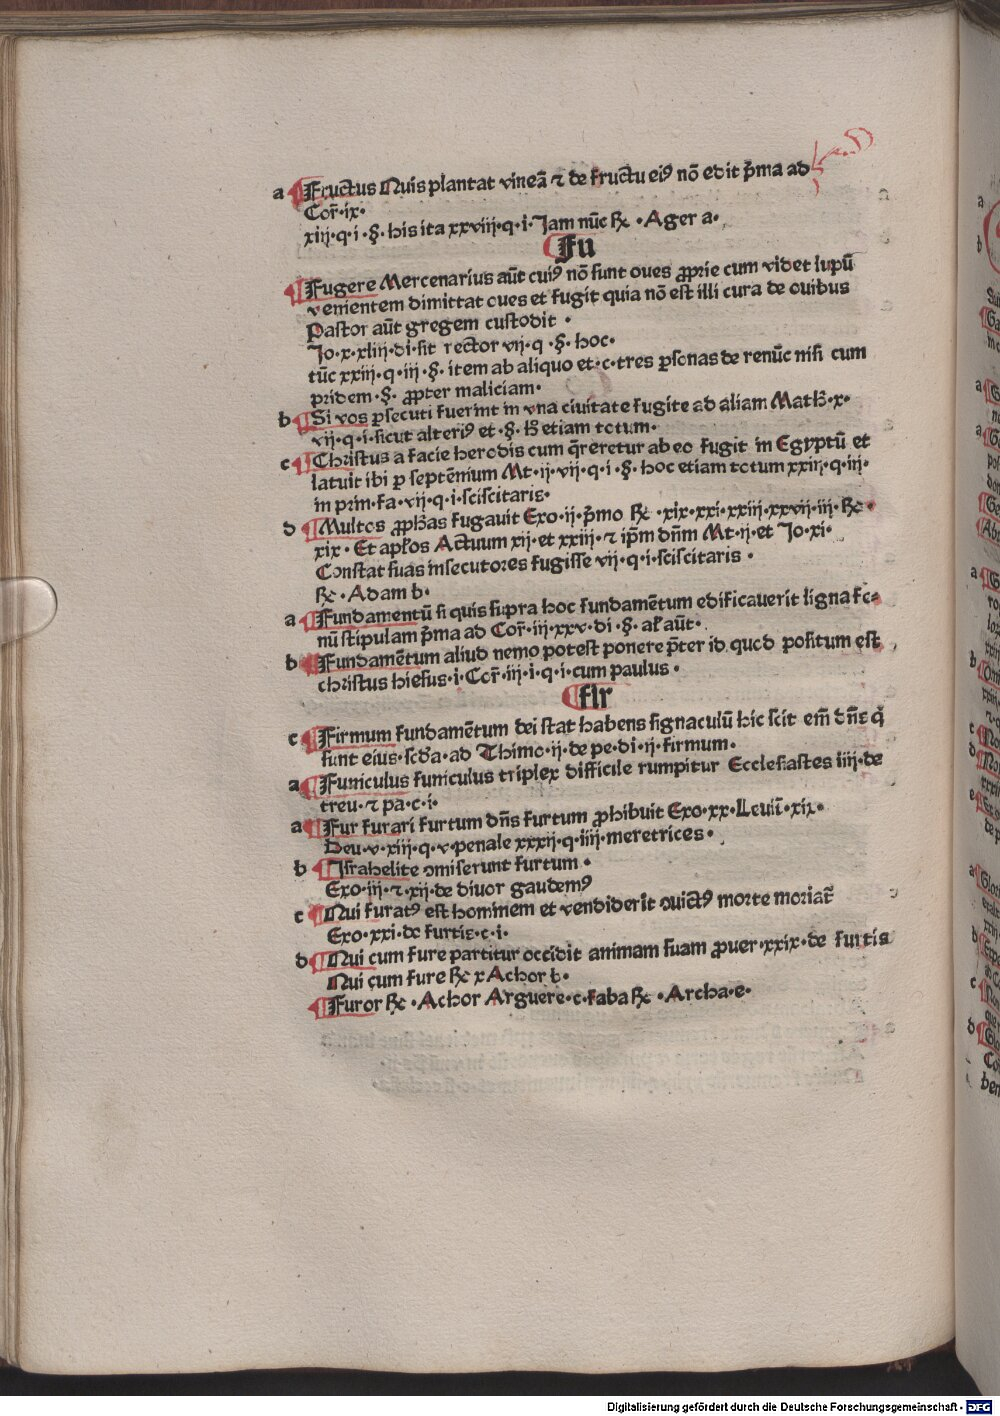 a Fructus Quis plantat vineā ⁊ de fructu eiꝰ nō edit p̄ma ad
Cor̄·ix·
xiij·q·i·§·his ita xxviij·q·i·Jam nūc R̷e·Ager a·
Fu
Fugere Mercenarius aūt cuiꝰ nō sunt oues ꝓprie cum videt lupū
venientem dimittat oues et fugit quia nō est illi cura de ouibus
Pastor aūt gregem custodit·
Jo·x·xliij·di·sit rector vij·q·§·hoc·
tūc xxiij·q·iij·§·item ab aliquo et·c·tres ꝑsonas de renūc nisi cum
pridem·§·ꝓpter maliciam·
b Si vos ꝑsecuti fuerint in vna ciuitate fugite ad aliam Math·x·
vij·q·i·sicut alteriꝰ et·§·h̄ etiam totum·
c Christus a facie herodis cum q̄reretur ab eo fugit in Egyptū et
latuit ibi ꝑ septēnium Mt·ij·vij·q·i·§·hoc etiam totum xxiij·q·iij·
in prin·fa·vij·q·i·sciscitaris·
d Multos ꝓph̄as fugauit Exo·ij·p̄mo R̷e·xix·xxi·xxiij·xxvij·iij·R̷e·
xix·Et apl̄os Actuum xij·et xxiij·⁊ ip̄m dn̄m Mt·ij·et Jo·xi·
Constat suas insecutores fugisse vij·q·i·sciscitaris·
R̷e·Adam b·
a Fundamentū si quis supra hoc fundamētum edificauerit ligna fe-
nū stipulam p̄ma ad Cor̄·iij·xxv·di·§·al̄ aūt·
b Fundamētum aliud nemo potest ponere p̄ter id quod positum est
christus hiesus·i·Cor̄·iij·i·q·i·cum paulus·
fir
c Firmum fundamētum dei stat habens signaculū hic scit em̄ dn̄s q̄
sunt eius·scd̄a·ad Thimo·ij·de pe·di·ij·firmum·
a Funiculus funiculus triplex difficile rumpitur Ecclesiastes iiij·de
treu·⁊ pa·c·i·
a Fur furari furtum dn̄s furtum ꝓhibuit Exo·xx·Leuit̄·xix·
Deu·v·xiij·q·v·penale xxxij·q·iiij·meretrices·
b Jsrahelite ꝯmiserunt furtum·
Exo·iij·⁊·xij·de diuor gaudemꝰ
c Qui furatꝰ est hominem et vendiderit ꝯuictꝰ morte moriat̄
Exo·xxi·de furtis·c·i·
d Qui cum fure partitur occidit animam suam ꝓuer·xxix·de furtis
Qui cum fure R̷e x Achor b·
Furor R̷e·Achor Arguere·c·faba R̷e·Archa·e·
Digitalisierung gefördert durch die Deutsche Forschungsgemeinschaft - DFG